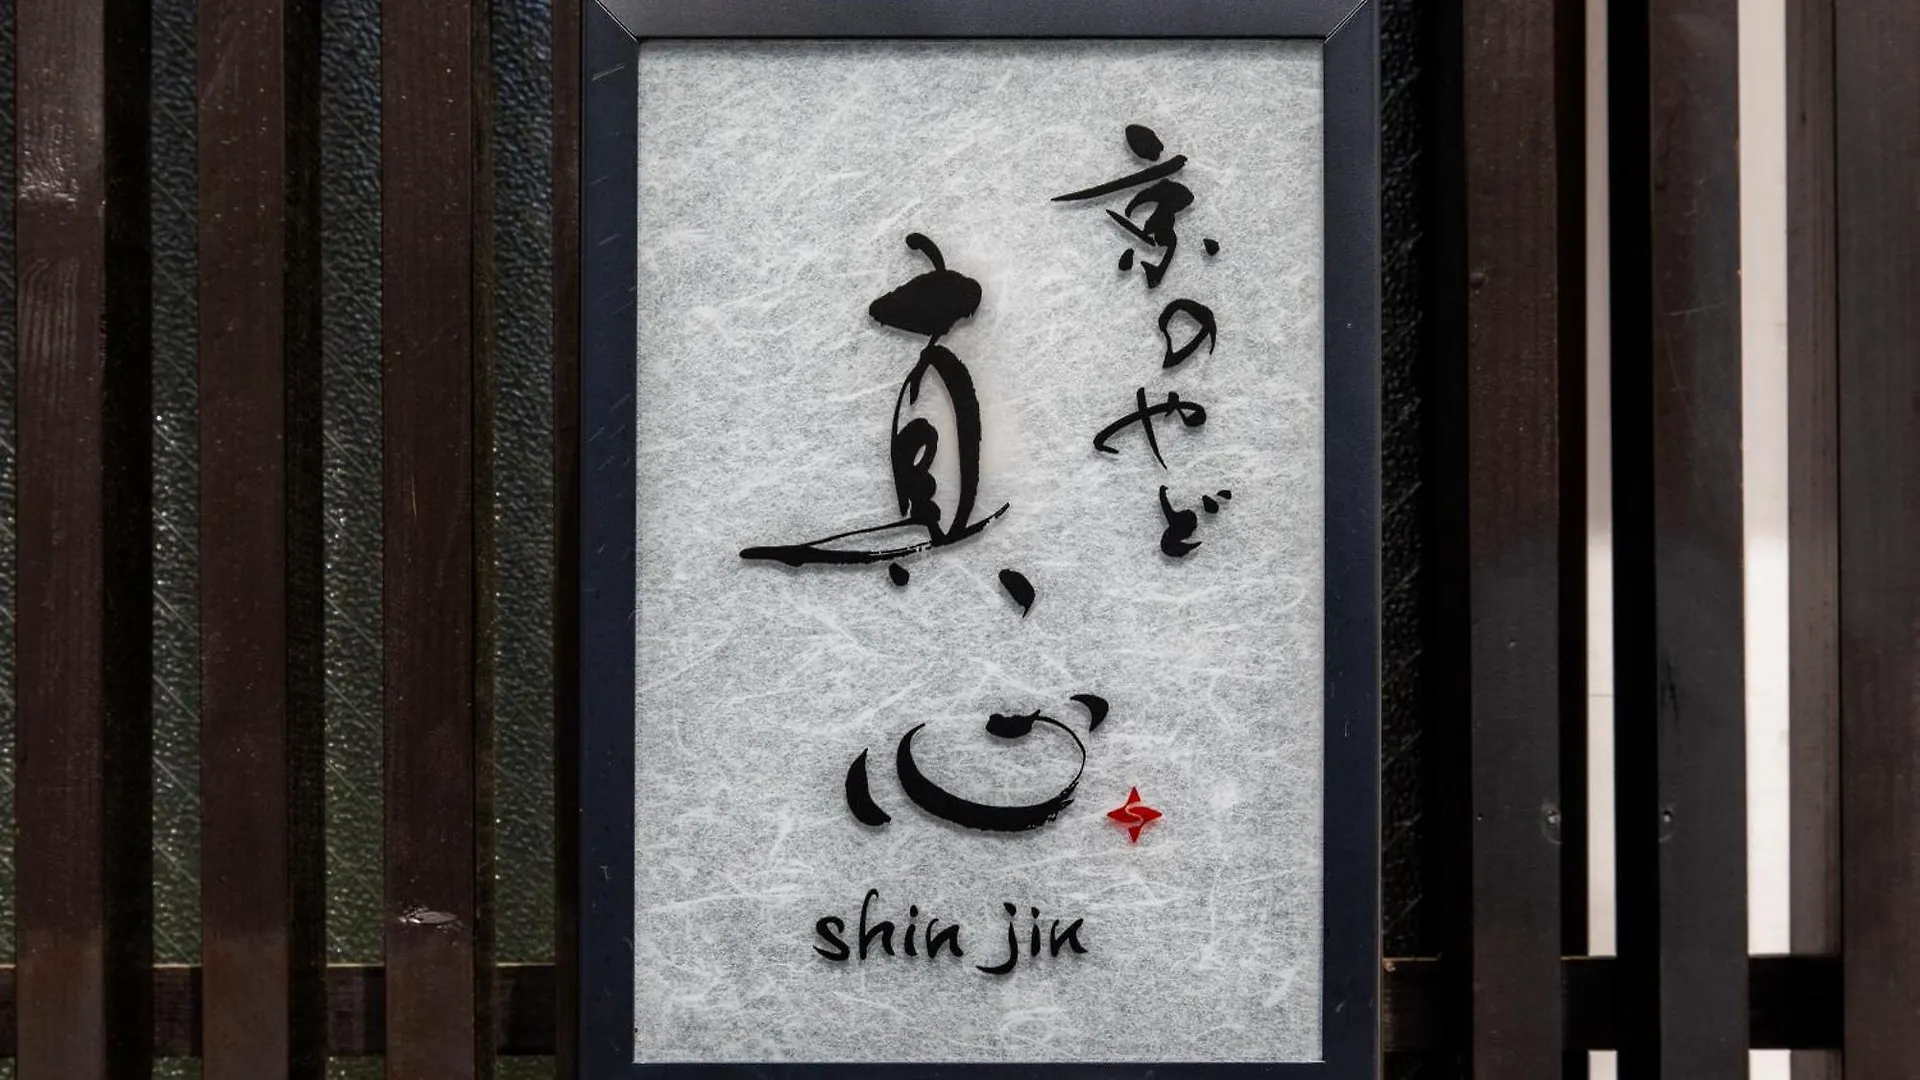 京のやど
真心
shin jin